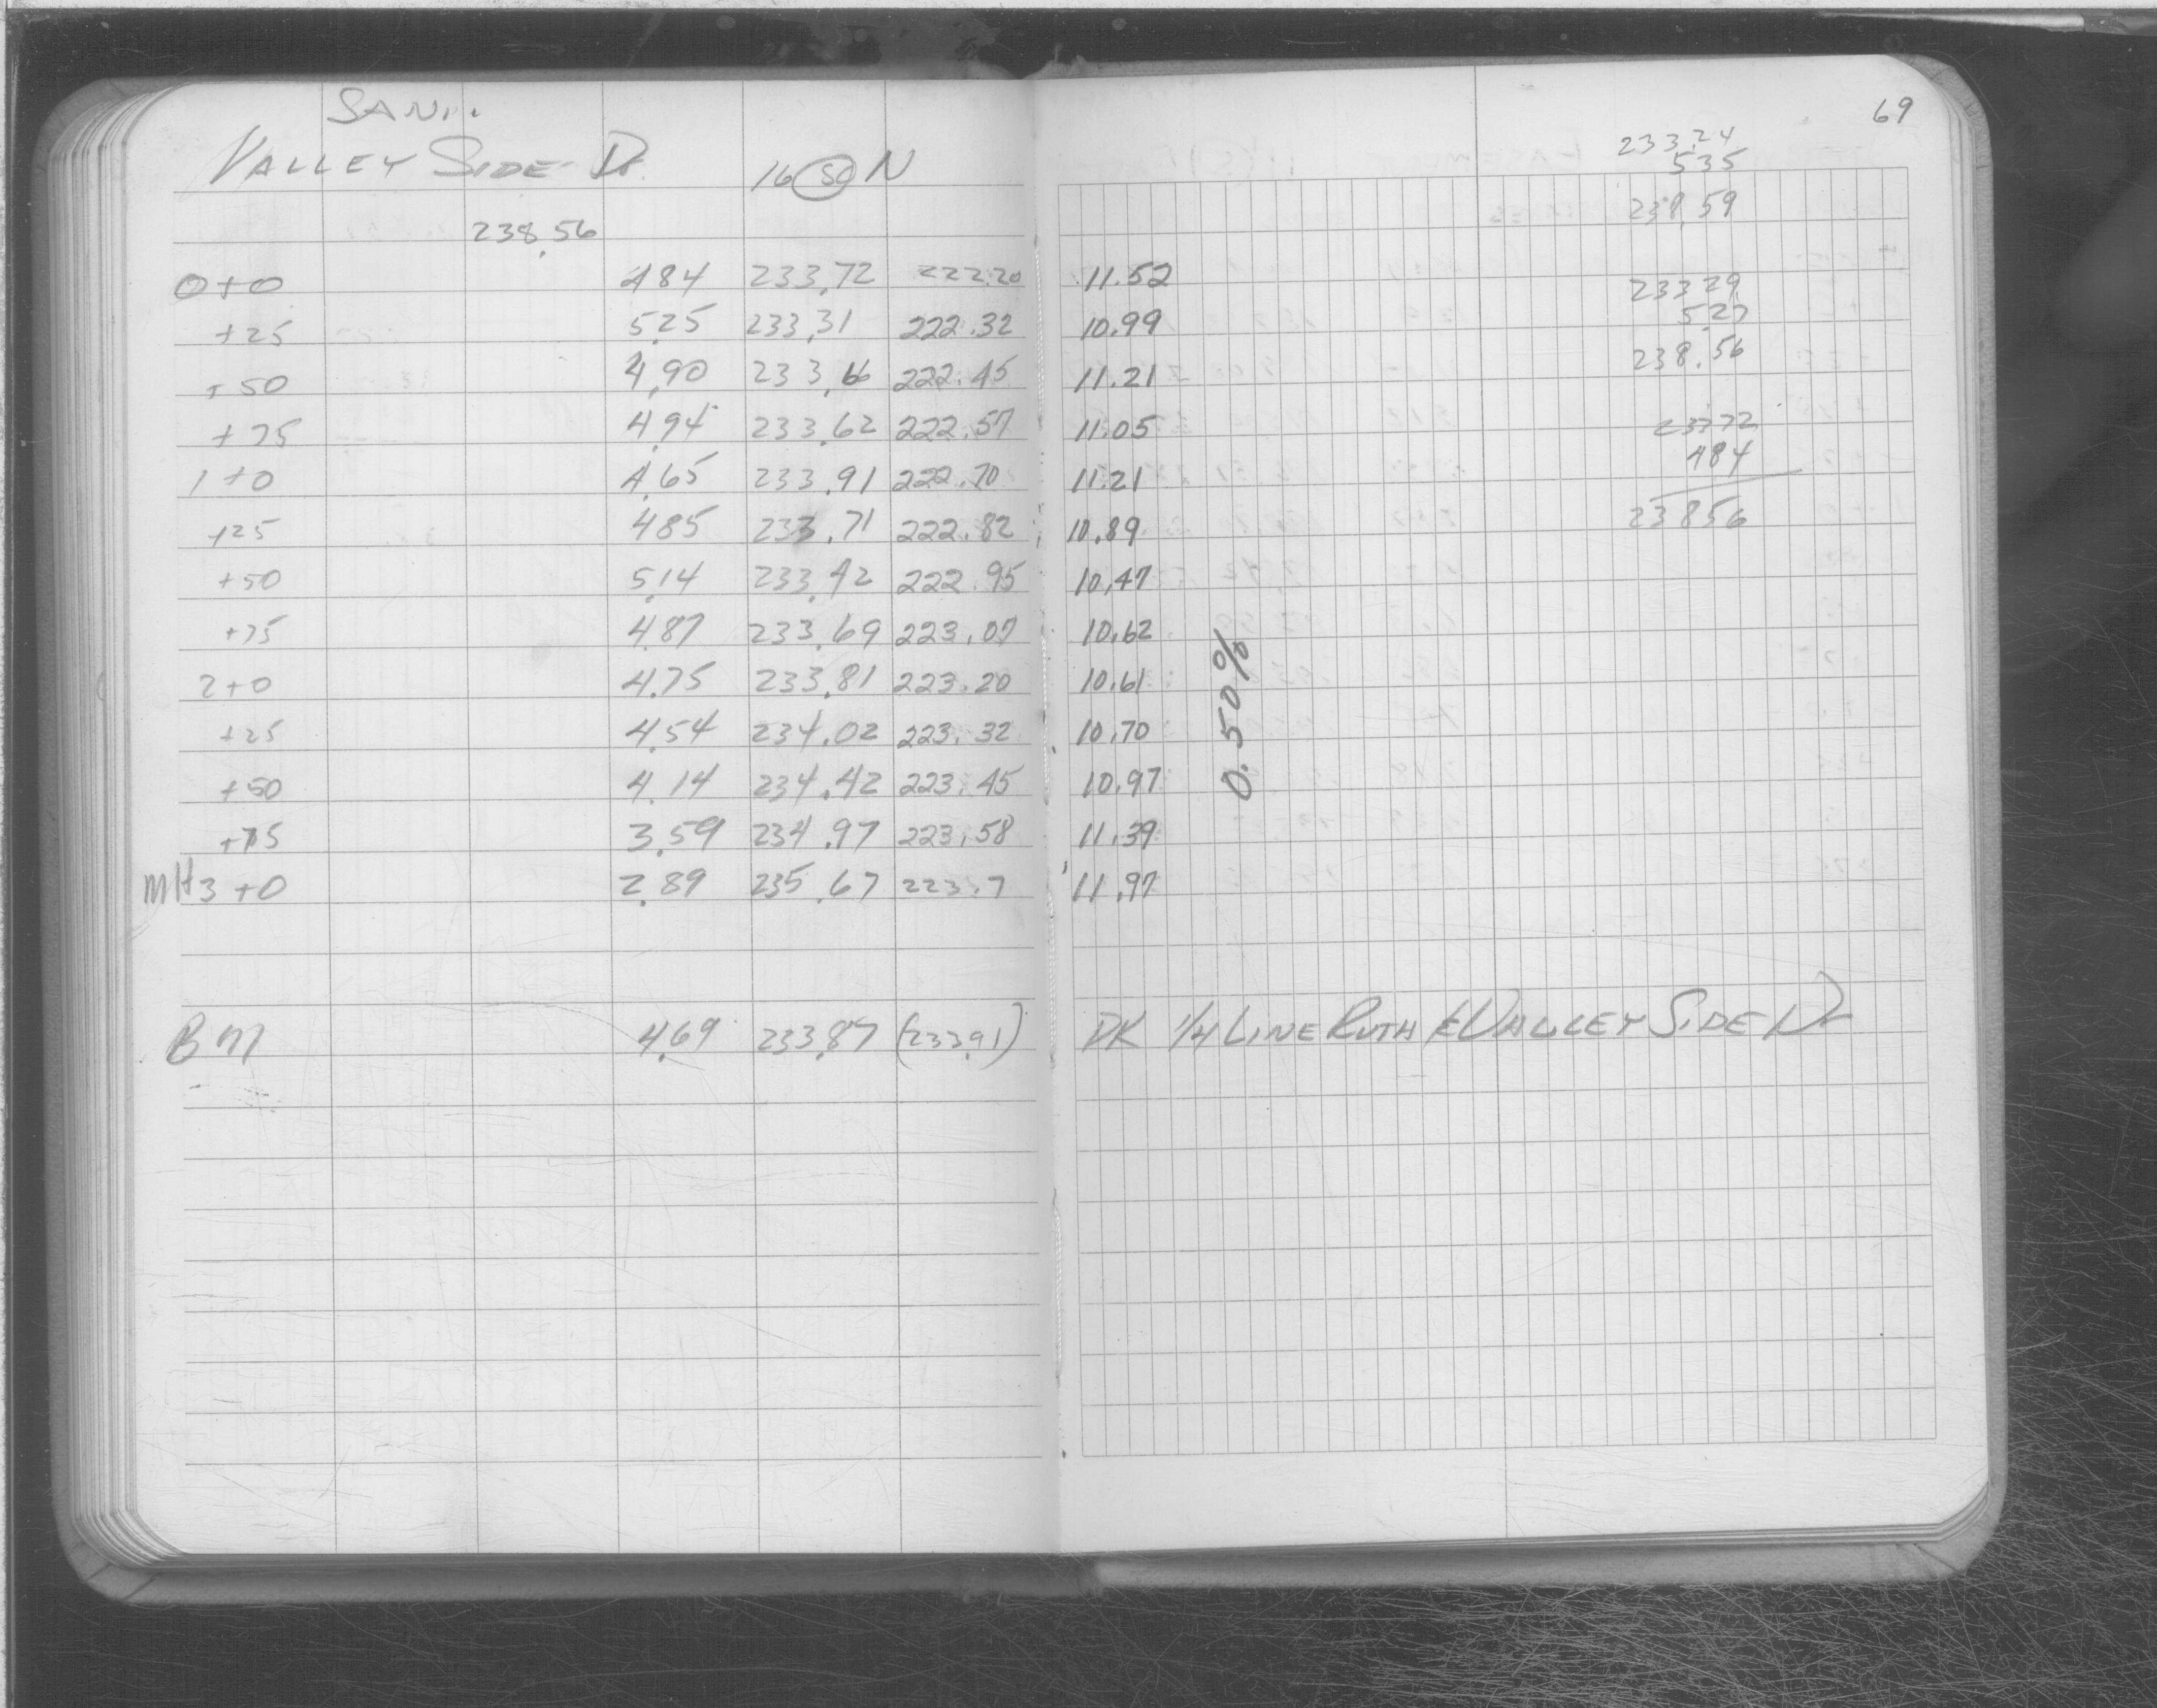 SANI.
VALLEY SIDE Dr. 16 (50) N
238.56
0+0 4.84 233.72 222.20 11.52
+25 5.25 233.31 222.32 10.99
+50 4.90 233.66 222.45 11.21
+75 4.94 233.62 222.57 11.05
1+0 4.65 233.91 222.70 11.21
+25 4.85 233.71 222.82 10.89
+50 5.14 233.42 222.95 10.47
+75 4.87 233.69 223.07 10.62
2+0 4.75 233.81 223.20 10.61
+25 4.54 234.02 223.32 10.70
+50 4.14 234.42 223.45 10.97
+75 3.59 234.97 223.58 11.39
MH3+0 2.89 235.67 223.7 11.97
BM 4.69 233.87 (233.91) PK 1/4 LINE RUTH & VALLEY SIDE Dr
0.50%
69
233.24
535
238.59
23329
5.27
238.56
23372
484
23856